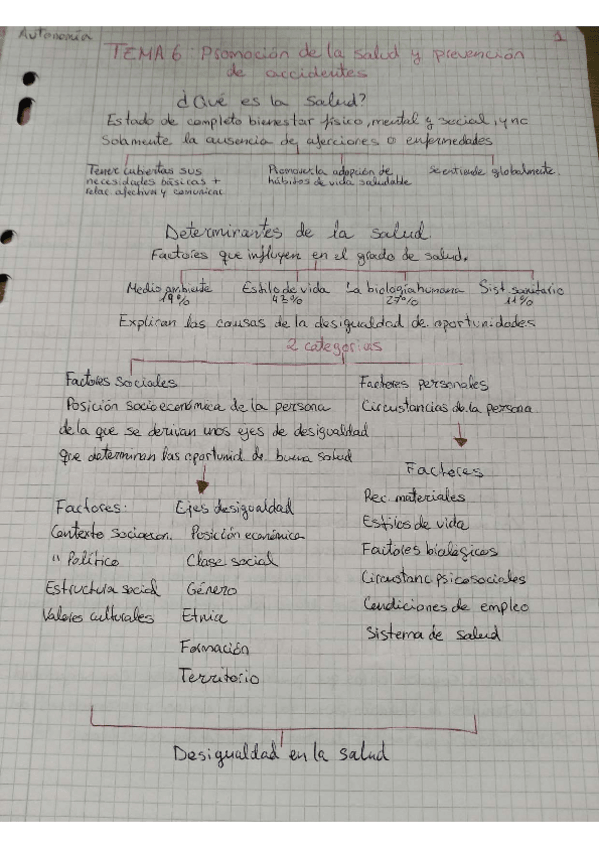 Autonomía
1
TEMA 6: Promoción de la salud y prevención
de accidentes
¿Qué es la salud?
Estado de completo bienestar físico, mental y social, y no
solamente la ausencia de afecciones o enfermedades
Tener cubiertas sus
necesidades básicas +
relac afectivas y comunicac
Promover la adopción de
hábitos de vida saludable
Se entiende globalmente.
Determinantes de la salud
Factores que influyen en el grado de salud.
Medio ambiente
19%
Estilo de vida
43%
La biología humana
27%
Sist. sanitario
11%
Explican las causas de la desigualdad de oportunidades
2 categorías
Factores sociales
Posición socioeconómica de la persona
de la que se derivan unos ejes de desigualdad
que determinan las oportunid de buena salud
Factores personales
Circustancias de la persona
Factores:
Contexto socioecon.
" Político
Estructura social
Valores culturales
Ejes desigualdad
Posición económica
Clase social
Género
Etnia
Formación
Territorio
Factores
Rec. materiales
Estilos de vida
Factores biológicos
Circustanc psicosociales
Condiciones de empleo
Sistema de salud
Desigualdad en la salud